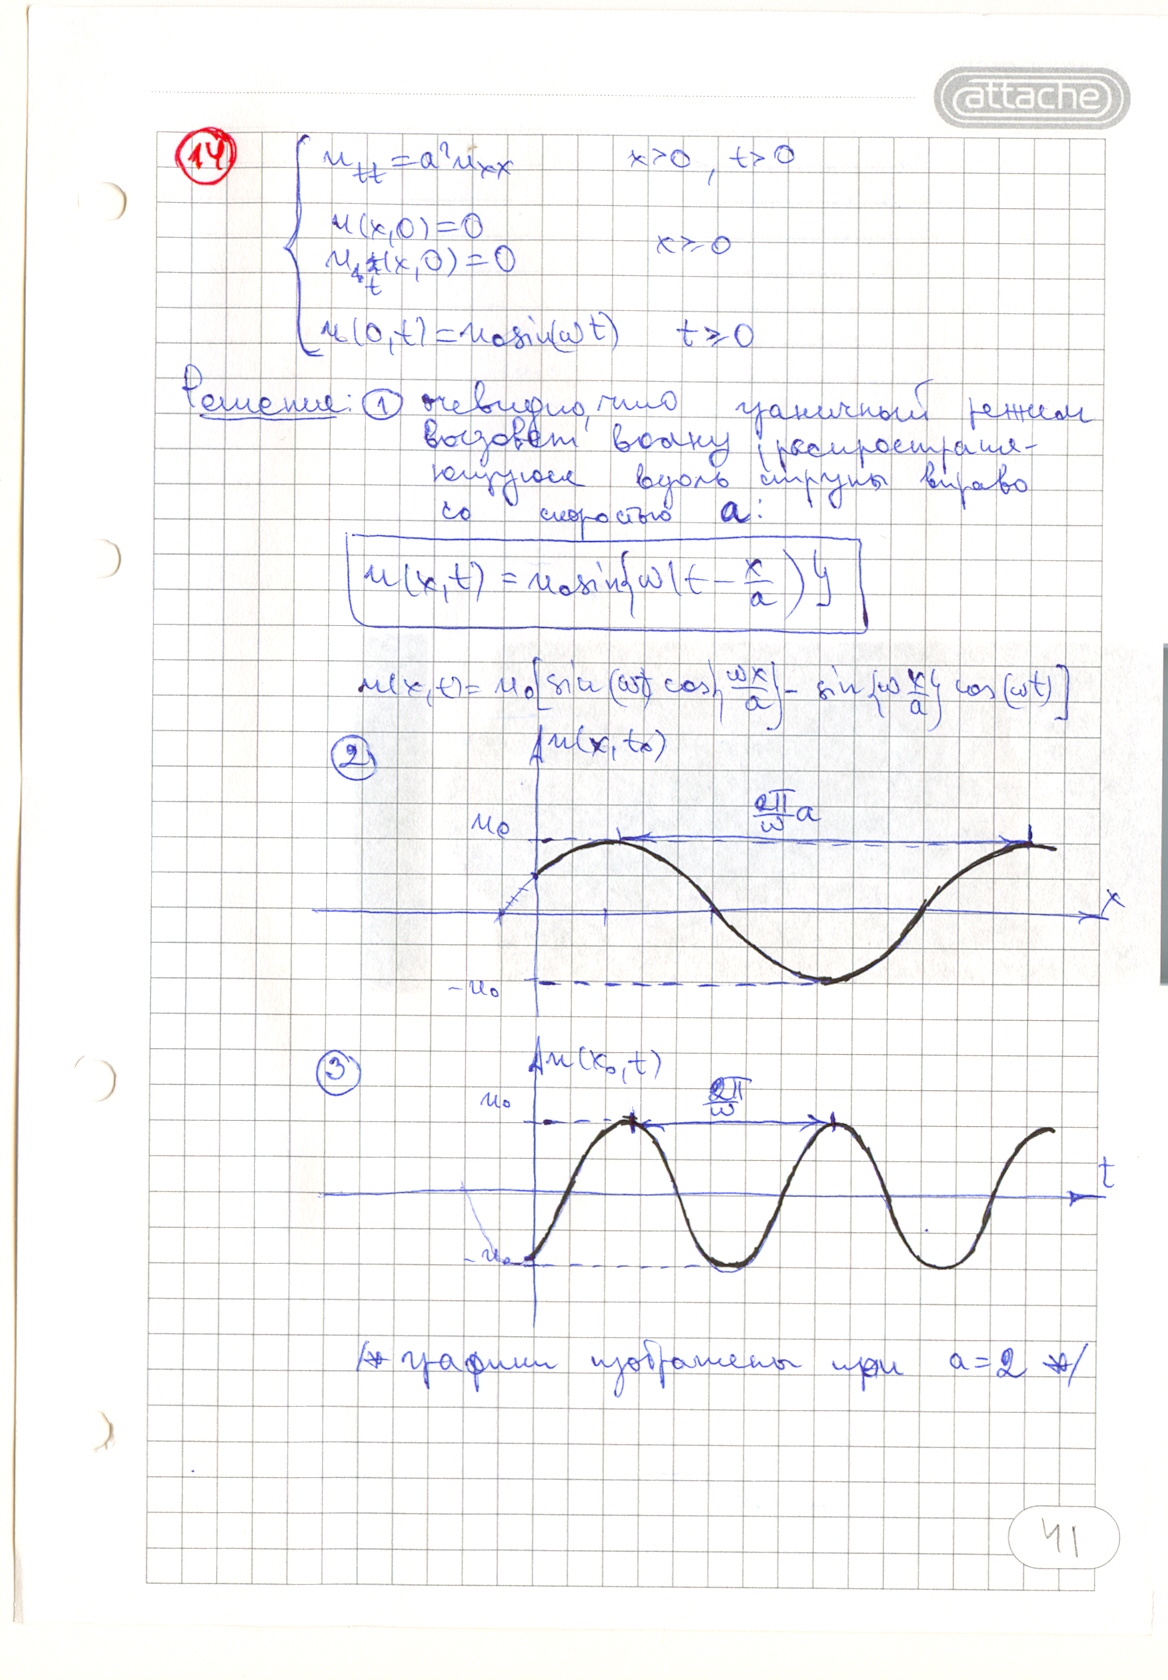 attache
14
u_tt = a²u_xx x>0, t>0
u(x,0)=0
x≥0
u_t(x,0)=0
u(0,t)=u₀sin(ωt) t≥0
Решение: ① очевидно, что граничный режим
вызовет волну, распространя-
ющуюся вдоль струны вправо
со скоростью a:
u(x,t) = u₀sin{ω(t - x/a)}
u(x,t)= u₀[sin(ωt) cos{ωx/a} - sin{ωx/a} cos(ωt)]
② u(x,t₀)
2π/ω a
u₀
x
-u₀
③ u(x₀,t)
2π/ω
u₀
t
-u₀
/* графики изображены при a=2 */
41